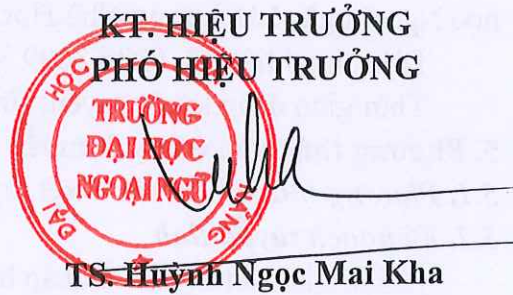 KT. HIỆU TRƯỞNG
PHÓ HIỆU TRƯỞNG
TRƯỜNG
ĐẠI HỌC
NGOẠI NGỮ
ĐẠI HỌC
TS. Huỳnh Ngọc Mai Kha